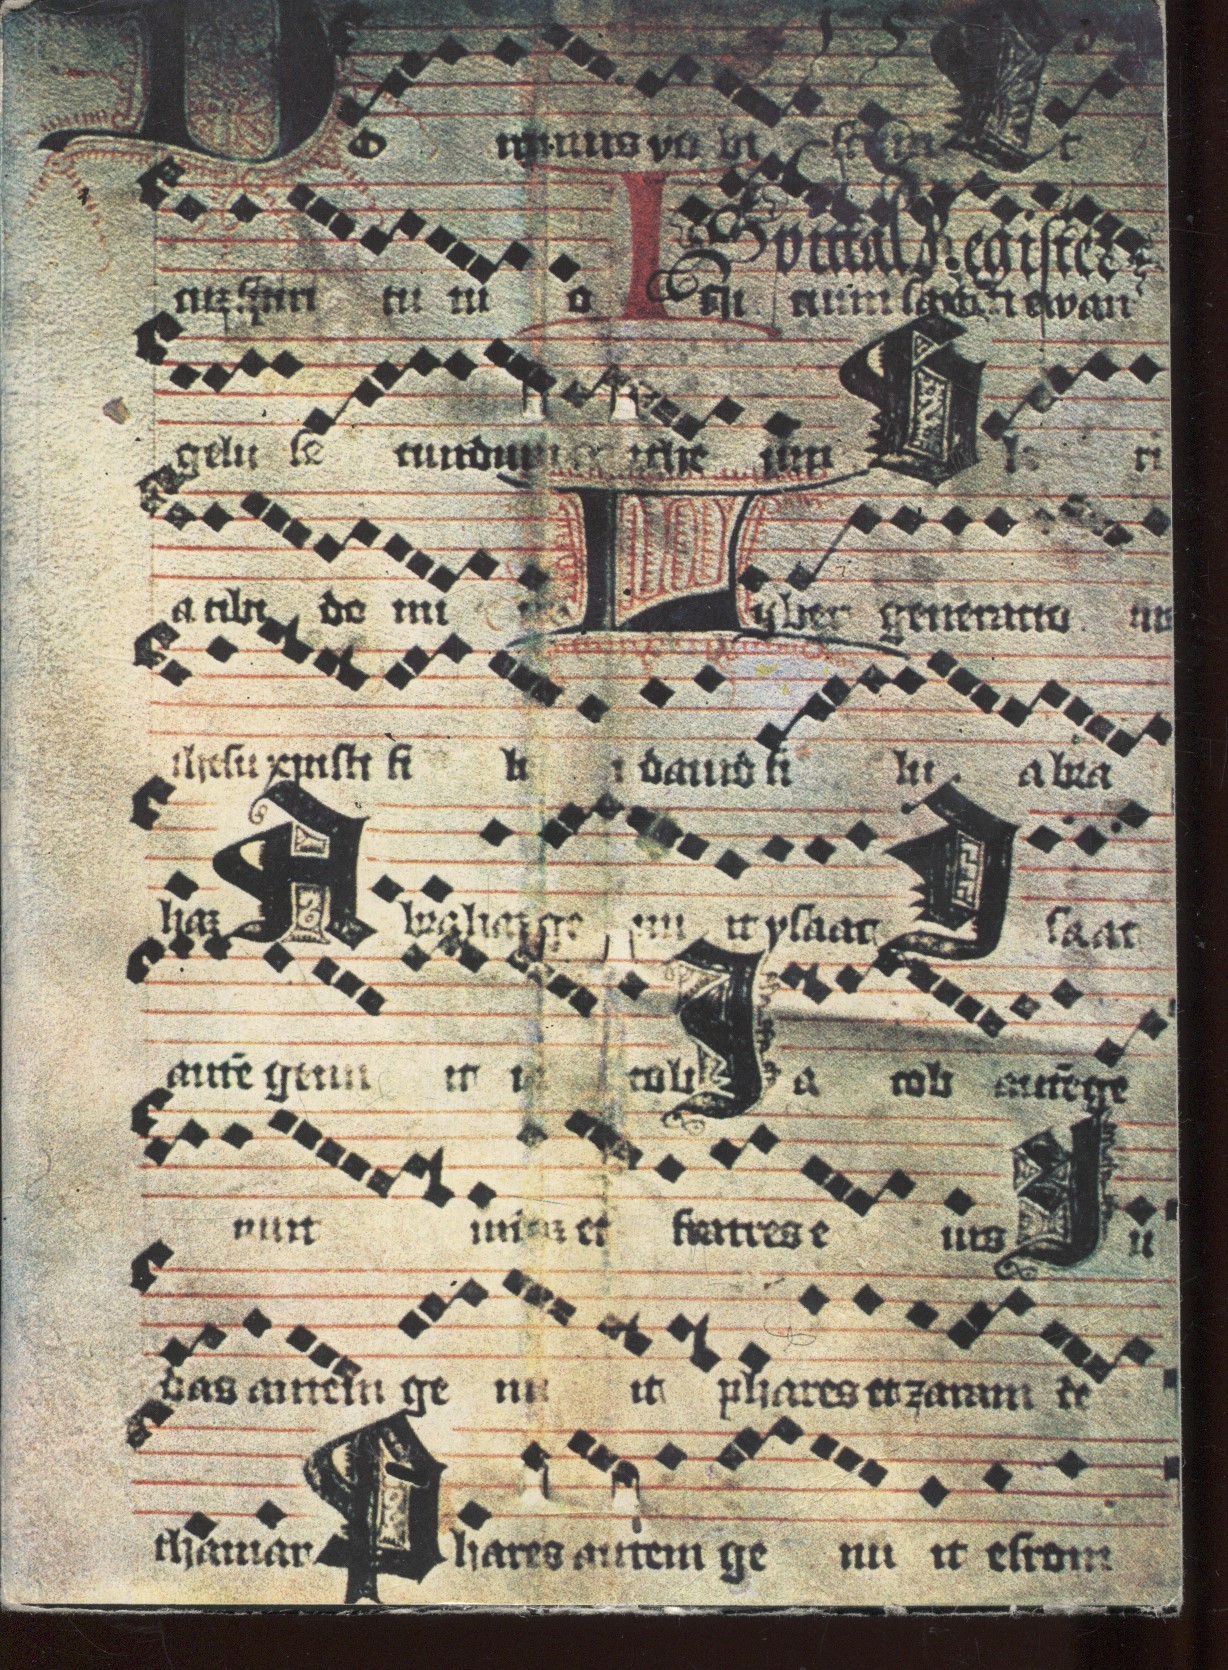 Do minus vo bi scum Et
cum spiri tu tu o I Spittal Register
Initium sancti ewan
gelii se cundum mathe um Glo ri
a tibi do mi ne Liber generatio nis
ihesu xpisti fi li i dauid fi lii abra
ham Abraham ge nu it ysaac Isaac
autē genu it ia cob Ia cob autē ge
nuit iudam et fratres e ius Iu
das autem ge nu it phares et zaram de
thamar Phares autem ge nu it esrom